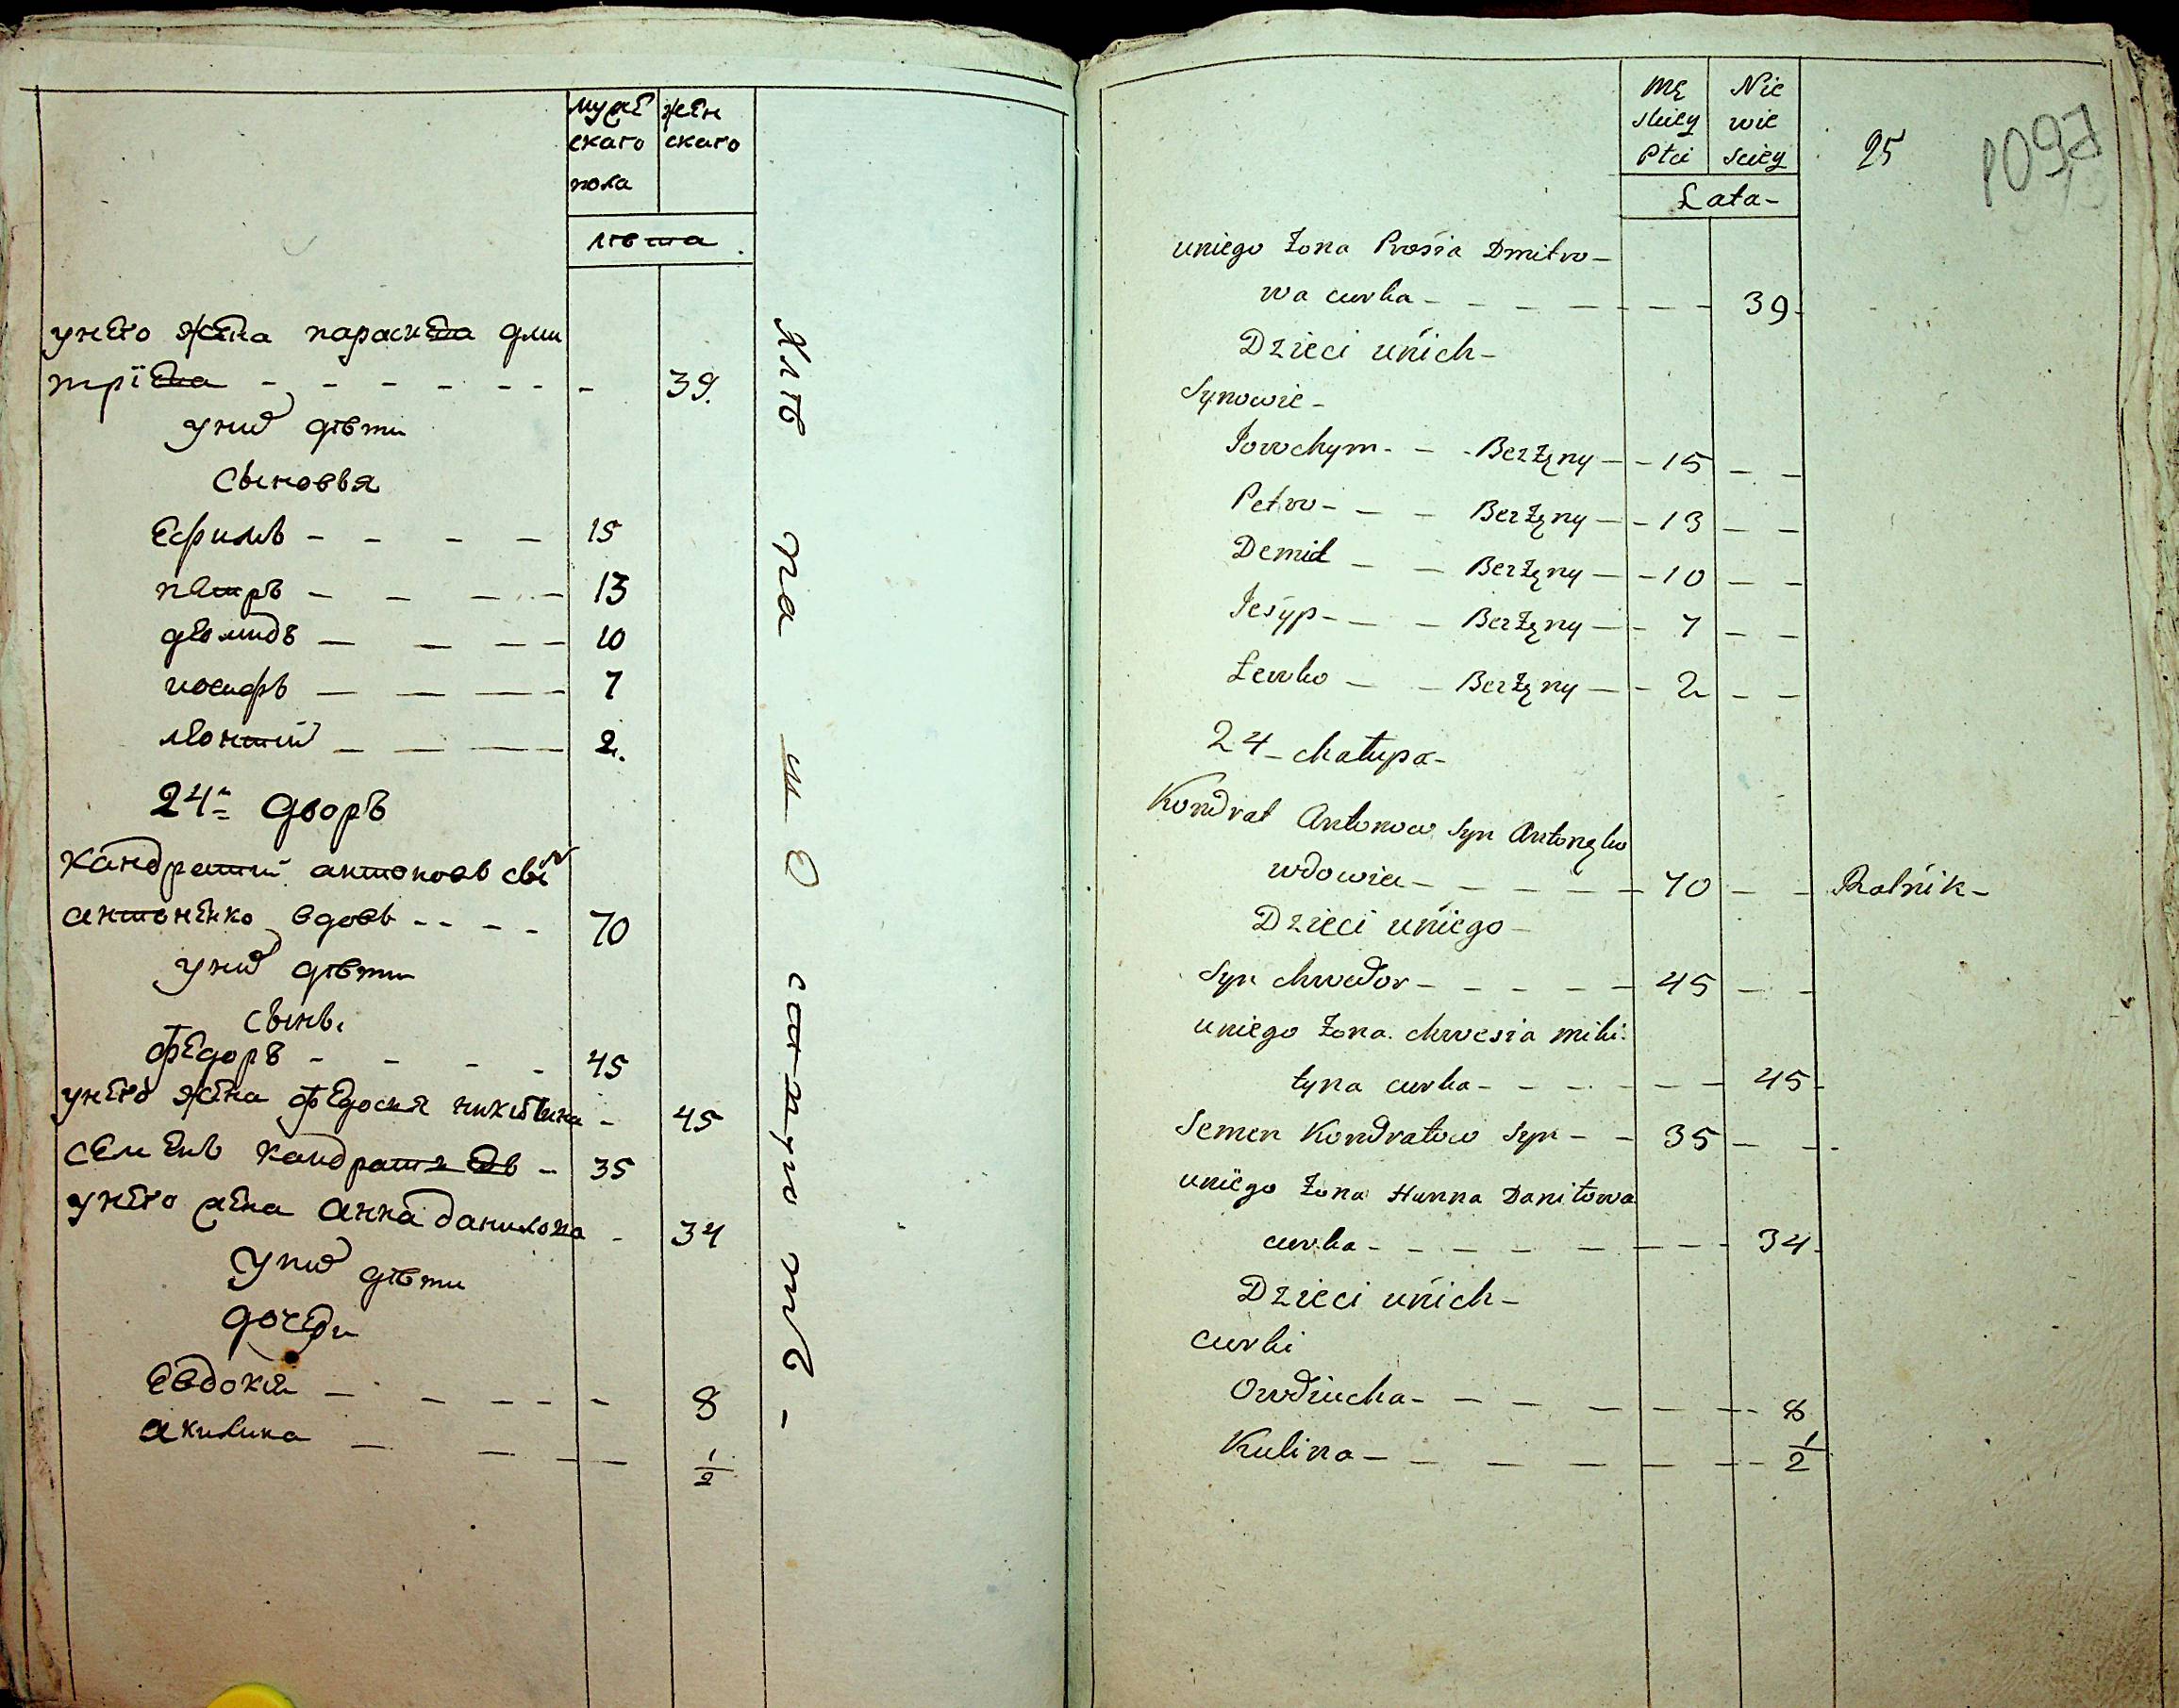 мужескаго женскаго
пола
лѣта
унего жена параскева дми
трїева - - - - - - - 39.
уних дѣти
Сыновья
Ефимъ - - - - 15
петръ - - - - 13
демидъ - - - - 10
иосифъ - - - - 7
леонтий - - - - 2.
24й дворъ
Кандратий антоновъ сынъ
антоненко вдовъ - - - - 70
уних дѣти
сынъ
федоръ - - - - 45
унего жена федосия никитина - 45
семенъ кандратьевъ - 35
унего жена анна данилова - 34
Уних дѣти
дочери
Евдокия - - - - - 8
акилина - - - - - 1/2
Mę Nie
skiey wie
Płci sciey
Łata -
25
1097
uniego żona Prosia Dmitro-
wa curka - - - - - - - 39.
Dzieci unich -
Synowie -
Jowchym - - - Bezżęny - - 15 - -
Petro - - - Bezżęny - - 13 - -
Demid - - Bezżęny - - 10 - -
Jesyp - - - Bezżęny - - 7 - -
Łewko - - Bezżęny - - 2 - -
24 - chałupa -
Kondrat Antonow syn Antonęko
wdowiec - - - - - 70 - - Rolnik -
Dzieci uniego -
Syn chwedor - - - - - 45 - -
uniego żona chwesia miki:
tyna curka - - - - - - 45 -
Semen Kondratow syn - - 35 - - -
uniego żona Hanna Daniłowa
curka - - - - - - - - 34 -
Dzieci unich -
curki
Owdiucha - - - - - - - 8
Kulina - - - - - - - 1/2